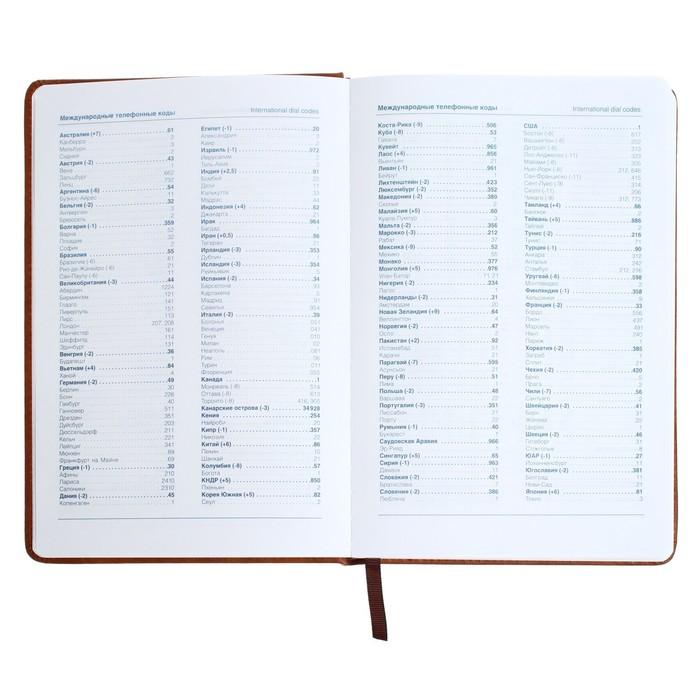 Международные телефонные коды International dial codes
Австралия (+7) 61
Канберра 2
Мельбурн 3
Сидней 2
Австрия (-2) 43
Вена 662
Зальцбург 732
Линц
Аргентина (-6) 54
Буэнос-Айрес 11
Бельгия (-2) 32
Антверпен 3
Брюссель 2
Болгария (-1) 359
Варна 52
Пловдив 32
София 2
Бразилия 55
Бразилиа (-6) 61
Рио-де-Жанейро (-6) 21
Сан-Паулу (-6) 11
Великобритания (-3) 44
Абердин 1224
Бирмингем 121
Глазго 141
Ливерпуль 151
Лидс 113
Лондон 207, 208
Манчестер 161
Шеффилд 114
Эдинбург 131
Венгрия (-2) 36
Будапешт 1
Вьетнам (+4) 84
Ханой 4
Германия (-2) 49
Берлин 30
Бонн 228
Гамбург 40
Ганновер 511
Дрезден 351
Дуйсбург 203
Дюссельдорф 211
Кельн 221
Лейпциг 341
Мюнхен 89
Франкфурт на Майне 69
Греция (-1) 30
Афины 210
Лариса 2410
Салоники 2310
Дания (-2) 45
Копенгаген 1
Египет (-1) 20
Александрия 3
Каир 2
Израиль (-1) 972
Иерусалим 2
Тель-Авив 3
Индия (+2,5) 91
Бомбей 22
Дели 11
Калькутта 33
Мадрас 44
Индонезия (+4) 62
Джакарта 21
Ирак 964
Багдад 1
Иран (+0,5) 98
Тегеран 21
Ирландия (-3) 353
Дублин 1
Исландия (-3) 354
Рейкьявик 5
Испания (-2) 34
Барселона 93
Картахена 5
Мадрид 91
Севилья 954
Италия (-2) 39
Болонья 051
Венеция 041
Генуя 010
Милан 02
Неаполь 081
Рим 06
Турин 011
Флоренция 055
Канада 1
Монреаль (-8) 514
Оттава (-8) 613
Торонто (-8) 416, 905
Канарские острова (-3) 34928
Кения 254
Найроби 20
Кипр (-1) 357
Никозия 22
Китай (+5) 86
Пекин 10
Шанхай 21
Колумбия (-8) 57
Богота 1
КНДР (+5) 850
Пхеньян 2
Корея Южная (+5) 82
Сеул 2
Международные телефонные коды International dial codes
Коста-Рика (-9) 506
Куба (-8) 53
Гавана 7
Кувейт 965
Лаос (+4) 856
Вьентьян 21
Ливан (-1) 961
Бейрут 1
Лихтенштейн (-2) 423
Люксембург (-2) 352
Македония (-2) 389
Скопье 2
Малайзия (+5) 60
Куала-Лумпур 3
Мальта (-2) 356
Марокко (-3) 212
Рабат 37
Мексика (-9) 52
Мехико 55
Монако 377
Монголия (+5) 976
Улан-Батор 11, 21
Нигерия (-2) 234
Лагос 1
Нидерланды (-2) 31
Амстердам 20
Новая Зеландия (+9) 64
Веллингтон 4
Норвегия (-2) 47
Осло 2
Пакистан (+2) 92
Исламабад 51
Карачи 21
Парагвай (-7) 595
Асунсьон 21
Перу (-8) 51
Лима 1
Польша (-2) 48
Варшава 22
Португалия (-3) 351
Лиссабон 21
Порту 22
Румыния (-1) 40
Бухарест 1
Саудовская Аравия 966
Эр-Рияд 1
Сингапур (+5) 65
Сирия (-1) 963
Дамаск 11
Словакия (-2) 421
Братислава 7
Словения (-2) 386
Любляна 1
США 1
Бостон (-8) 617
Вашингтон (-8) 202
Детройт (-8) 313
Лос-Анджелес (-11) 323
Майами (-8) 305
Нью-Йорк (-8) 212, 646
Сан-Франциско (-11) 415
Сент-Луис (-9) 314
Сиэтл (-11) 206
Чикаго (-9) 312, 773
Таиланд (+4) 66
Бангкок 2
Тайвань (+5) 886
Тайпей 2
Тунис (-2) 216
Тунис 71
Турция (-1) 90
Анкара 312
Анталья 242
Стамбул 212, 216
Уругвай (-6) 598
Монтевидео 2
Финляндия (-1) 358
Хельсинки 9
Франция (-2) 33
Бордо 556
Лион 437
Марсель 491
Нант 240
Париж 1
Хорватия (-2) 385
Загреб 1
Сплит 21
Чехия (-2) 420
Брно 5
Прага 2
Чили (-7) 56
Сантьяго 2
Швейцария (-2) 41
Берн 31
Женева 22
Цюрих 1
Швеция (-2) 46
Гетеборг 31
Стокгольм 8
ЮАР (-1) 27
Йоханнесбург 11
Югославия (-2) 381
Белград 11
Нови-Сад 21
Япония (+6) 81
Токио 3